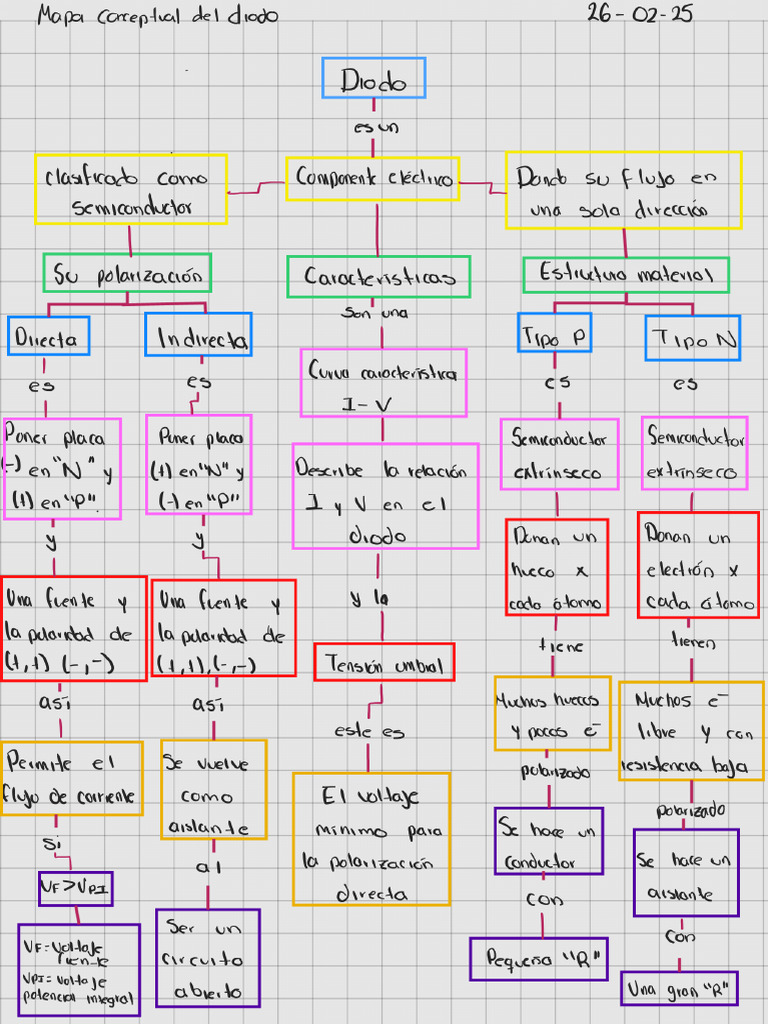 Mapa Conceptual del diodo
26-02-25
Diodo
es un
Componente eléctrico
clasificado como
semiconductor
Dando su flujo en
una sola dirección
Su polarización
Directa
es
Poner placa
(-) en "N" y
(+) en "P".
y
Una fuente y
la polaridad de
(+,+) (-,-)
así
Permite el
flujo de corriente
si
VF>VPI
VF=Voltaje
fuente
VPI=Voltaje
potencia integral
Indirecta
es
Poner placa
(+) en "N" y
(-) en "P"
y
Una fuente y
la polaridad de
(+,+),(-,-)
así
Se vuelve
como
aislante
al
Ser un
circuito
abierto
Características
son una
Curva característica
I-V
Describe la relación
I y V en el
diodo
y la
Tensión umbral
este es
El voltaje
mínimo para
la polarización
directa
Estructura material
Tipo P
es
Semiconductor
extrínseco
Donan un
hueco x
cada átomo
tiene
Muchos huecos
y pocos e-
polarizado
Se hace un
conductor
con
Pequeña "R"
Tipo N
es
Semiconductor
extrínseco
Donan un
electrón x
cada átomo
tienen
Muchos e-
libre y con
resistencia baja
polarizado
Se hace un
aislante
con
Una gran "R"